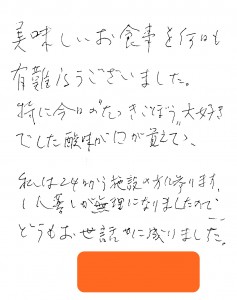 美味しいお食事を何日も
有難うございました。
特に今日の“たつきごぼう„大好き
でした酸味が口が覚えてい、
私は24から施設の方に寄ります、
1人暮しが無理になりましたので
どうもお世話かに成りました。